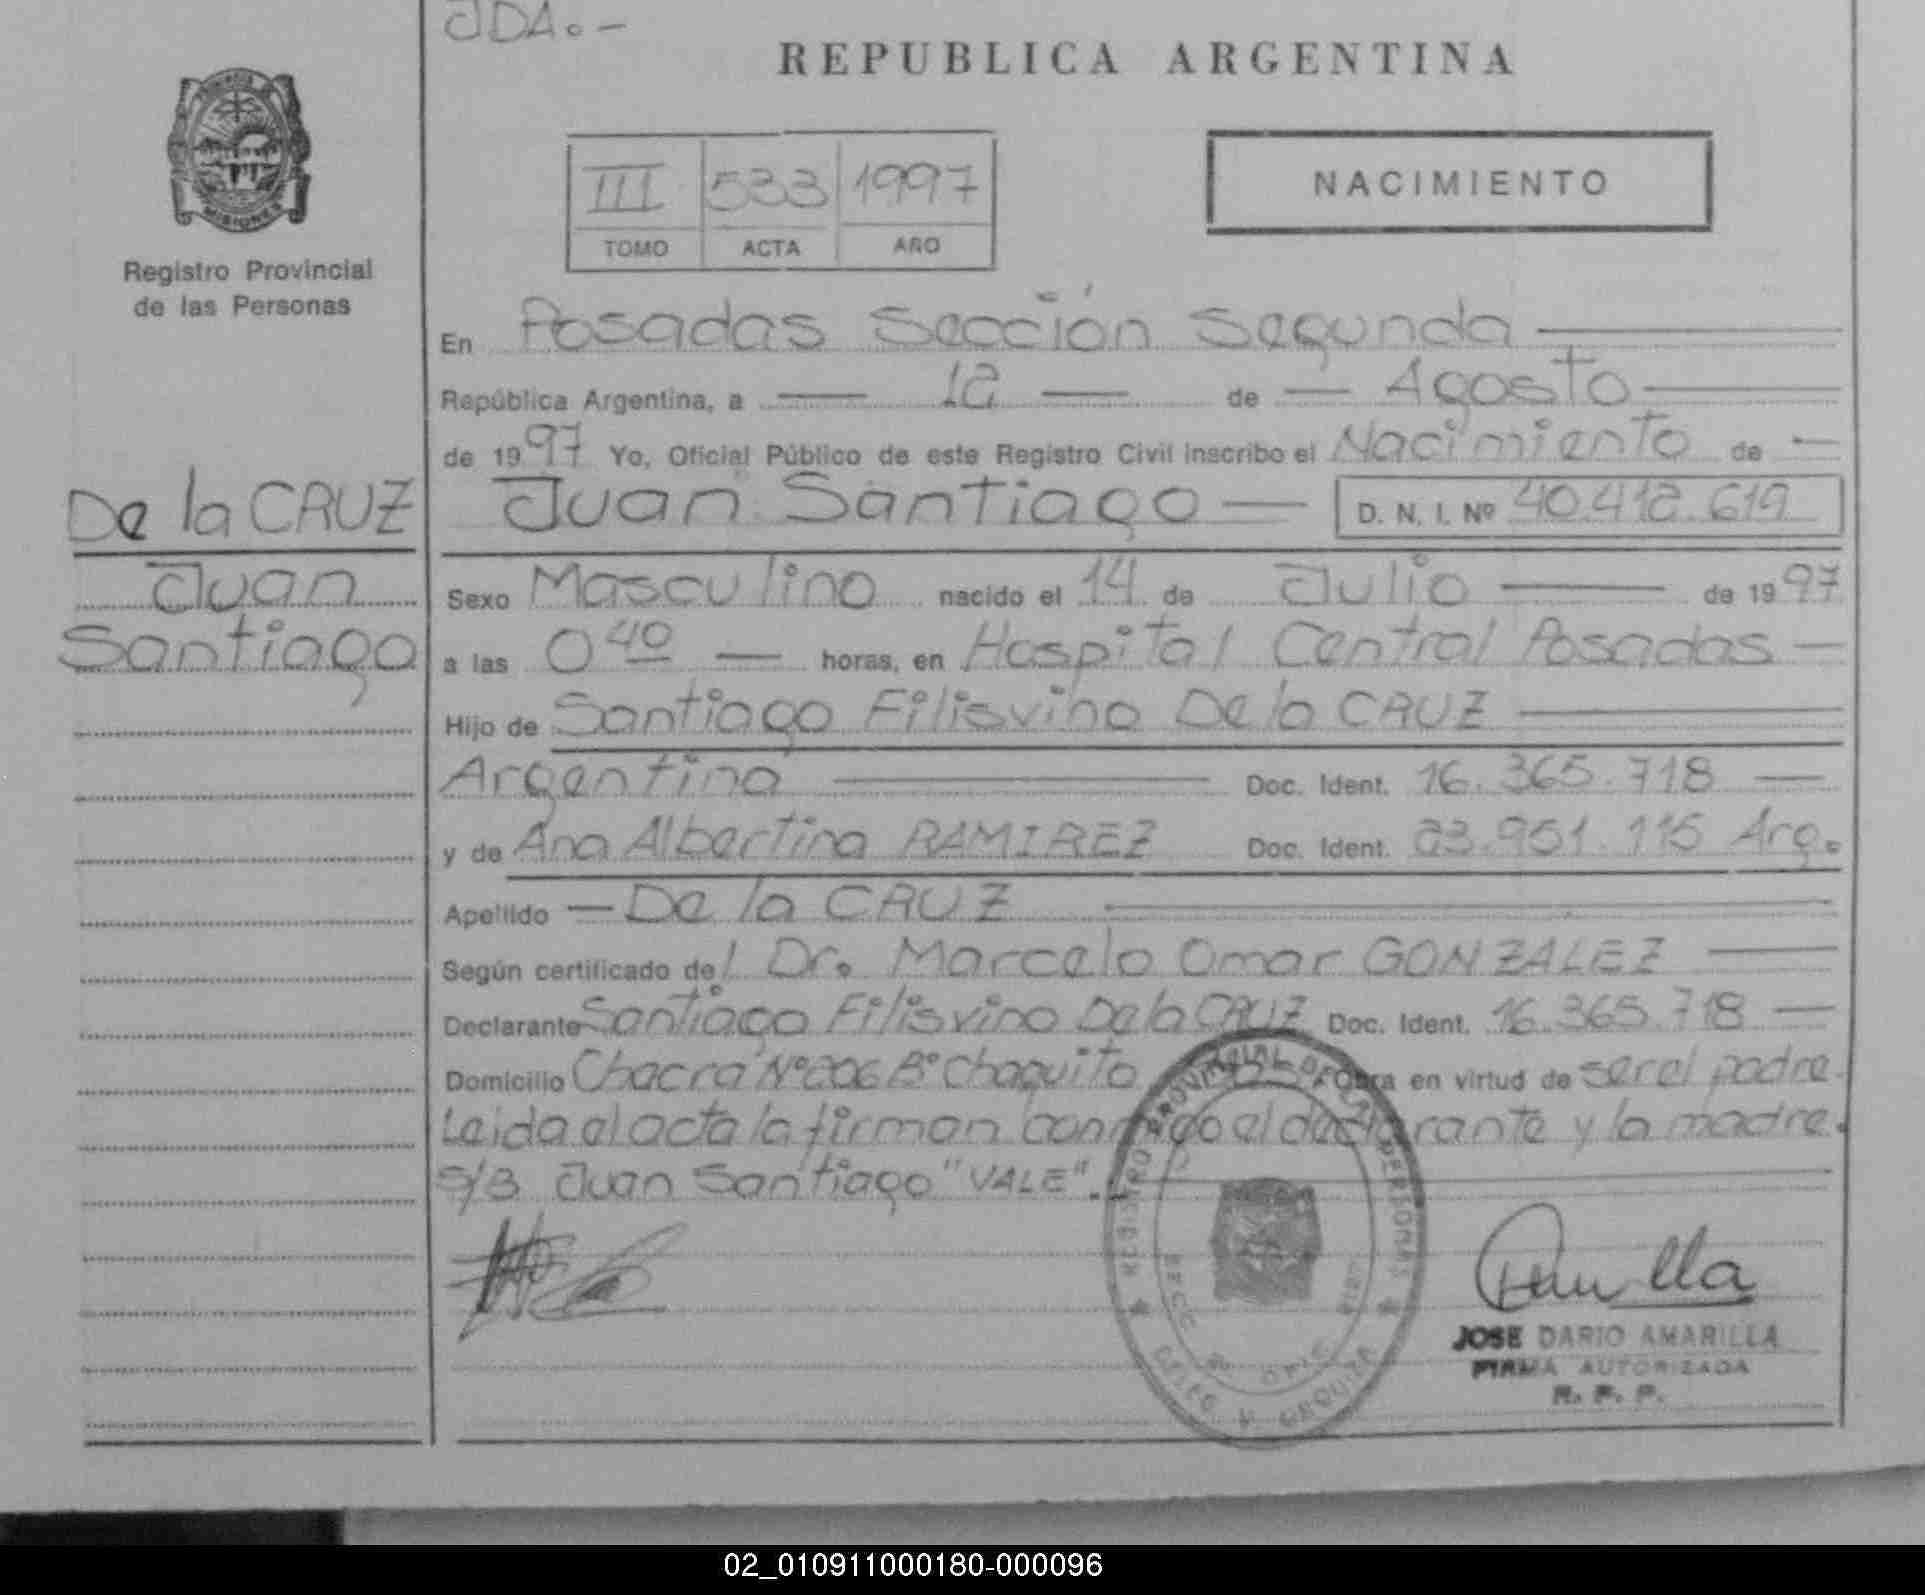 JDA.-
REPUBLICA ARGENTINA
MISIONES
Registro Provincial
de las Personas
III 533 1997
TOMO ACTA AÑO
NACIMIENTO
En Posadas Sección Segunda
República Argentina, a — 12 — de — Agosto
de 1997 Yo, Oficial Público de este Registro Civil inscribo el Nacimiento de —
De la CRUZ
Juan
Santiago
Juan Santiago — D. N. I. Nº 40.412.619
Sexo Masculino nacido el 14 de Julio — de 1997
a las 0 40 — horas, en Hospital Central Posadas —
Hijo de Santiago Filisvino De la CRUZ —
Argentino — Doc. Ident. 16.365.718 —
y de Ana Albertina RAMIREZ Doc. Ident. 23.951.115 Arg.
Apellido — De la CRUZ —
Según certificado del Dr. Marcelo Omar GONZALEZ —
Declarante Santiago Filisvino De la CRUZ Doc. Ident. 16.365.718 —
Domicilio Chacra Nº 206 Bº Chaquito Obra en virtud de ser el padre.
Leida el acta la firman conmigo el declarante y la madre.
S/B Juan Santiago "VALE".-
REGISTRO PROVINCIAL DE LAS PERSONAS
JOSE DARIO AMARILLA
FIRMA AUTORIZADA
R. P. P.
02_010911000180-000096